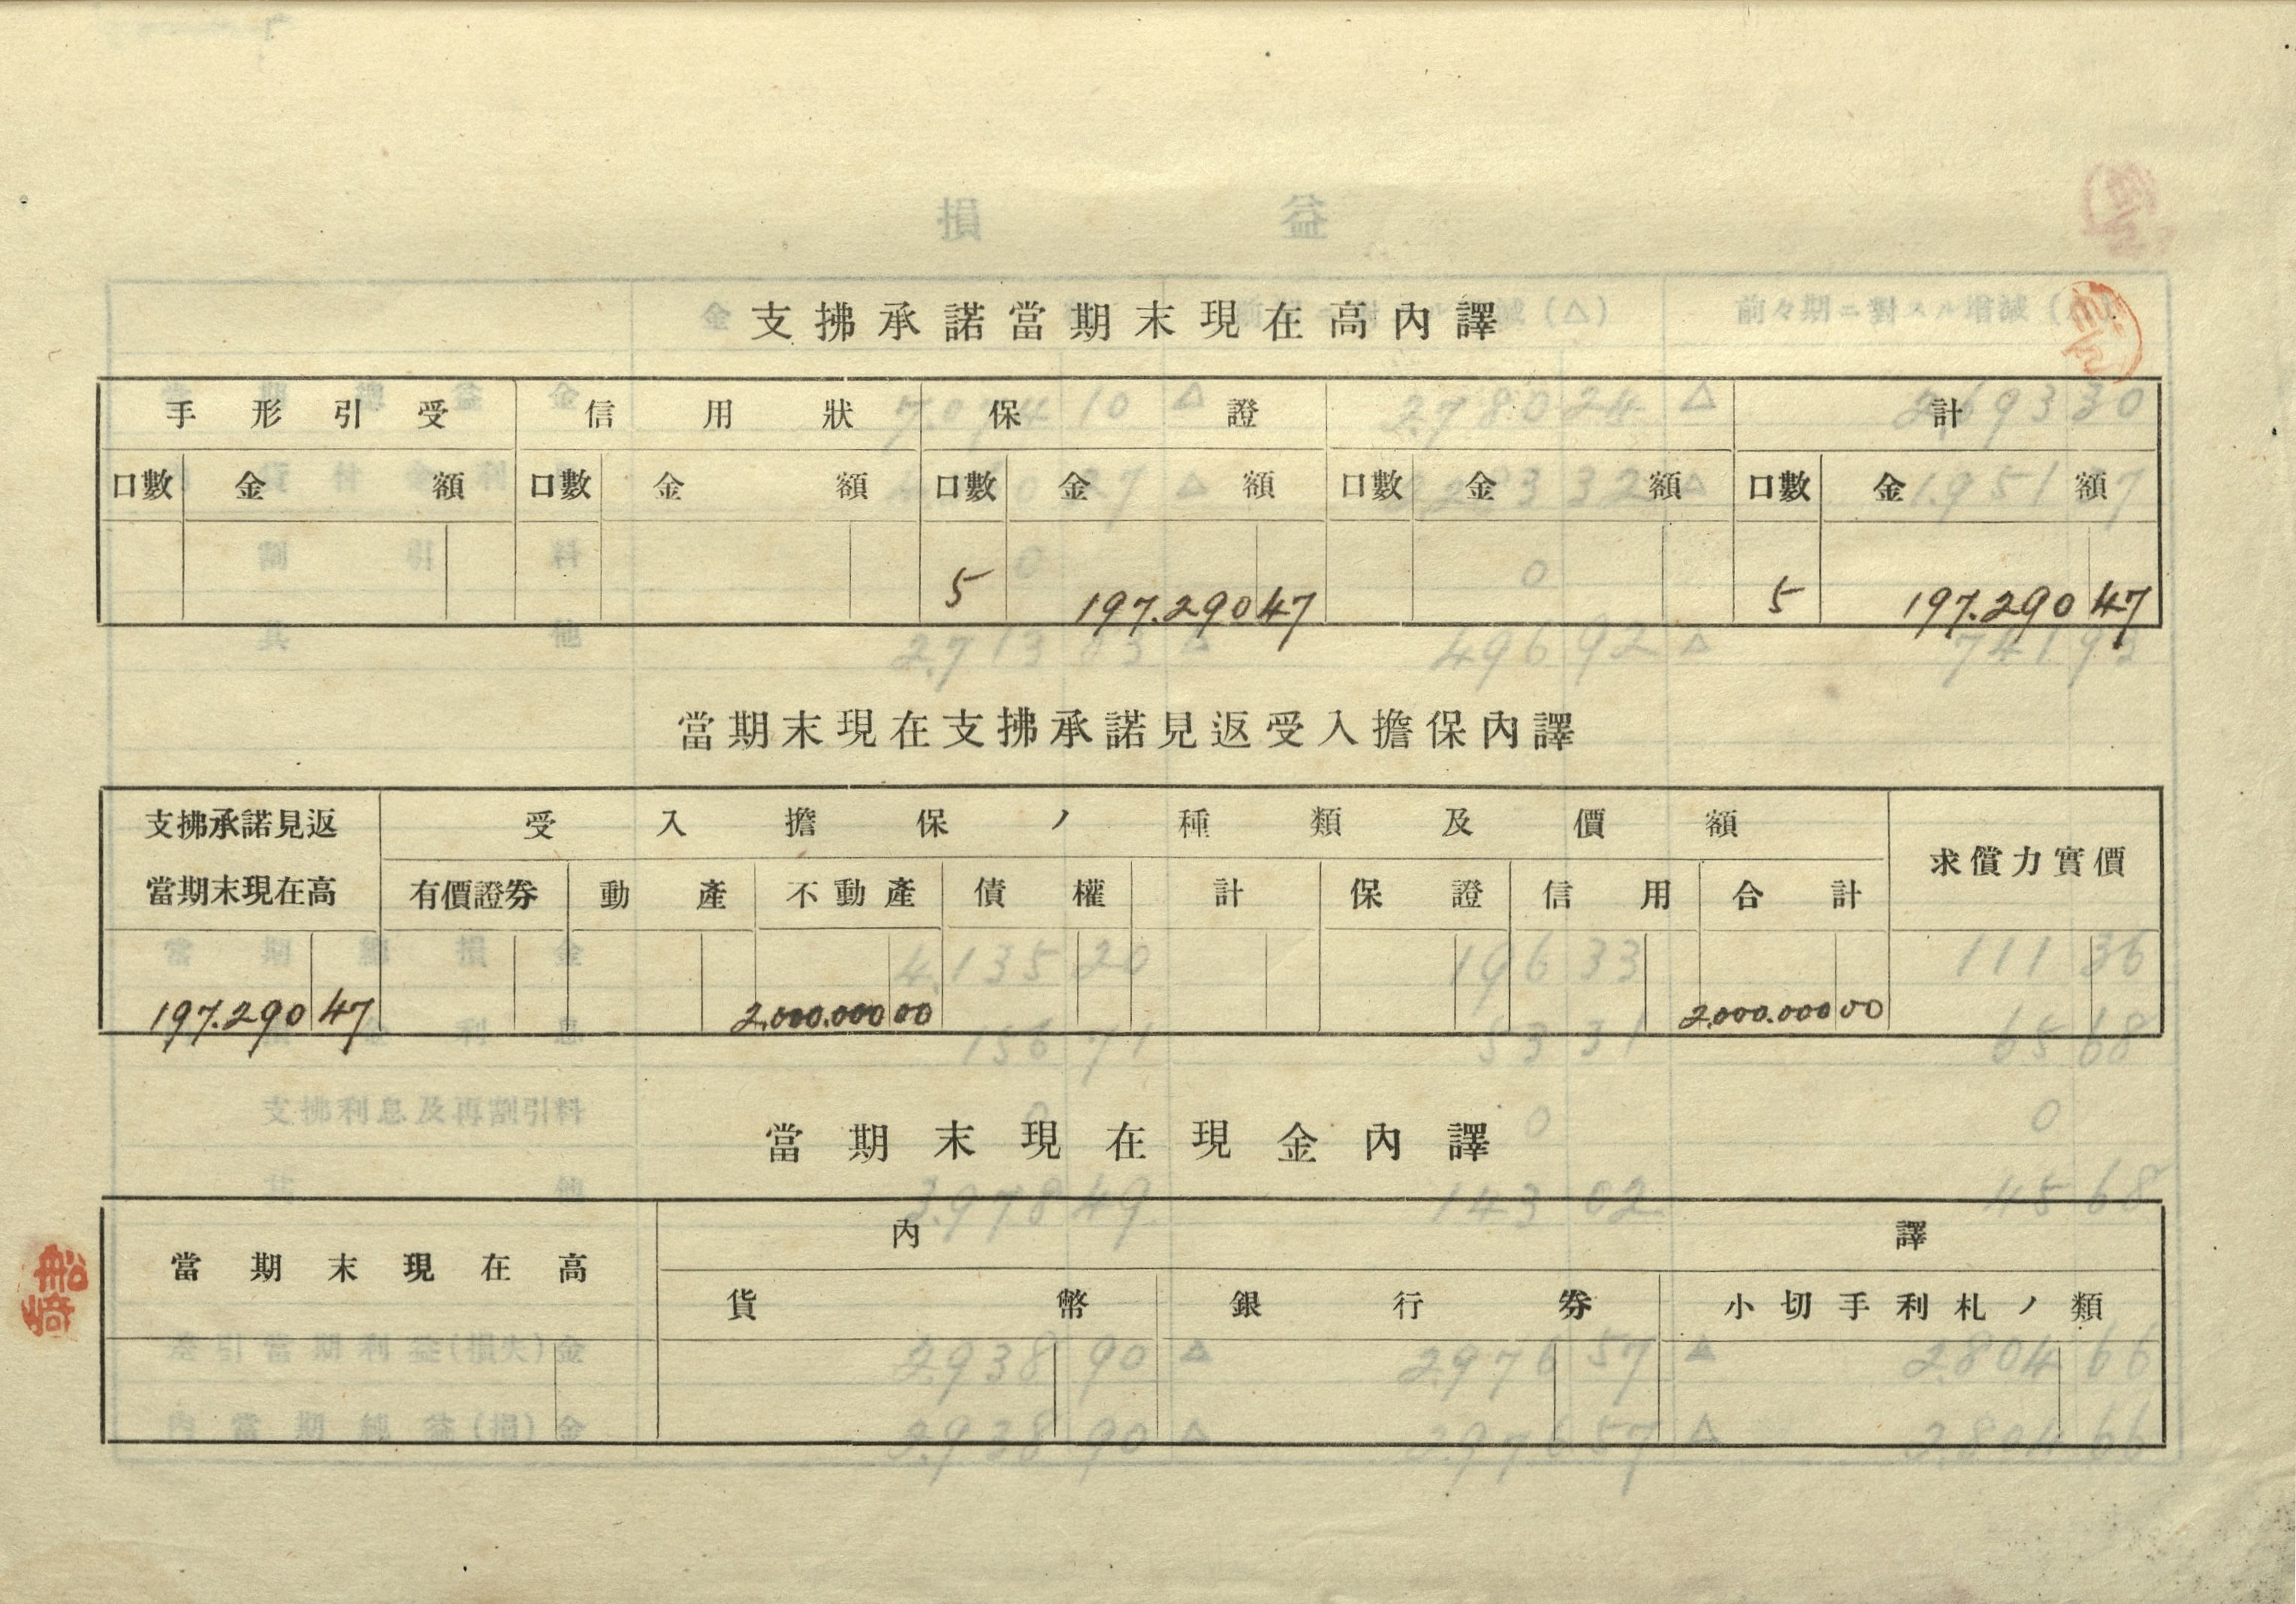 支拂承諾當期末現在高內譯
手形引受 信用狀 保證 計
口數 金額 口數 金額 口數 金額 口數 金額 口數 金額
5 197.290 47 5 197.290 47
當期末現在支拂承諾見返受入擔保內譯
支拂承諾見返 受入擔保ノ種類及價額 求償力實價
當期末現在高 有價證券 動產 不動產 債權 計 保證 信用 合計
197.290 47 2.000.000 00 2.000.000 00
當期末現在現金內譯
當期末現在高 內譯
貨幣 銀行券 小切手利札ノ類
船崎